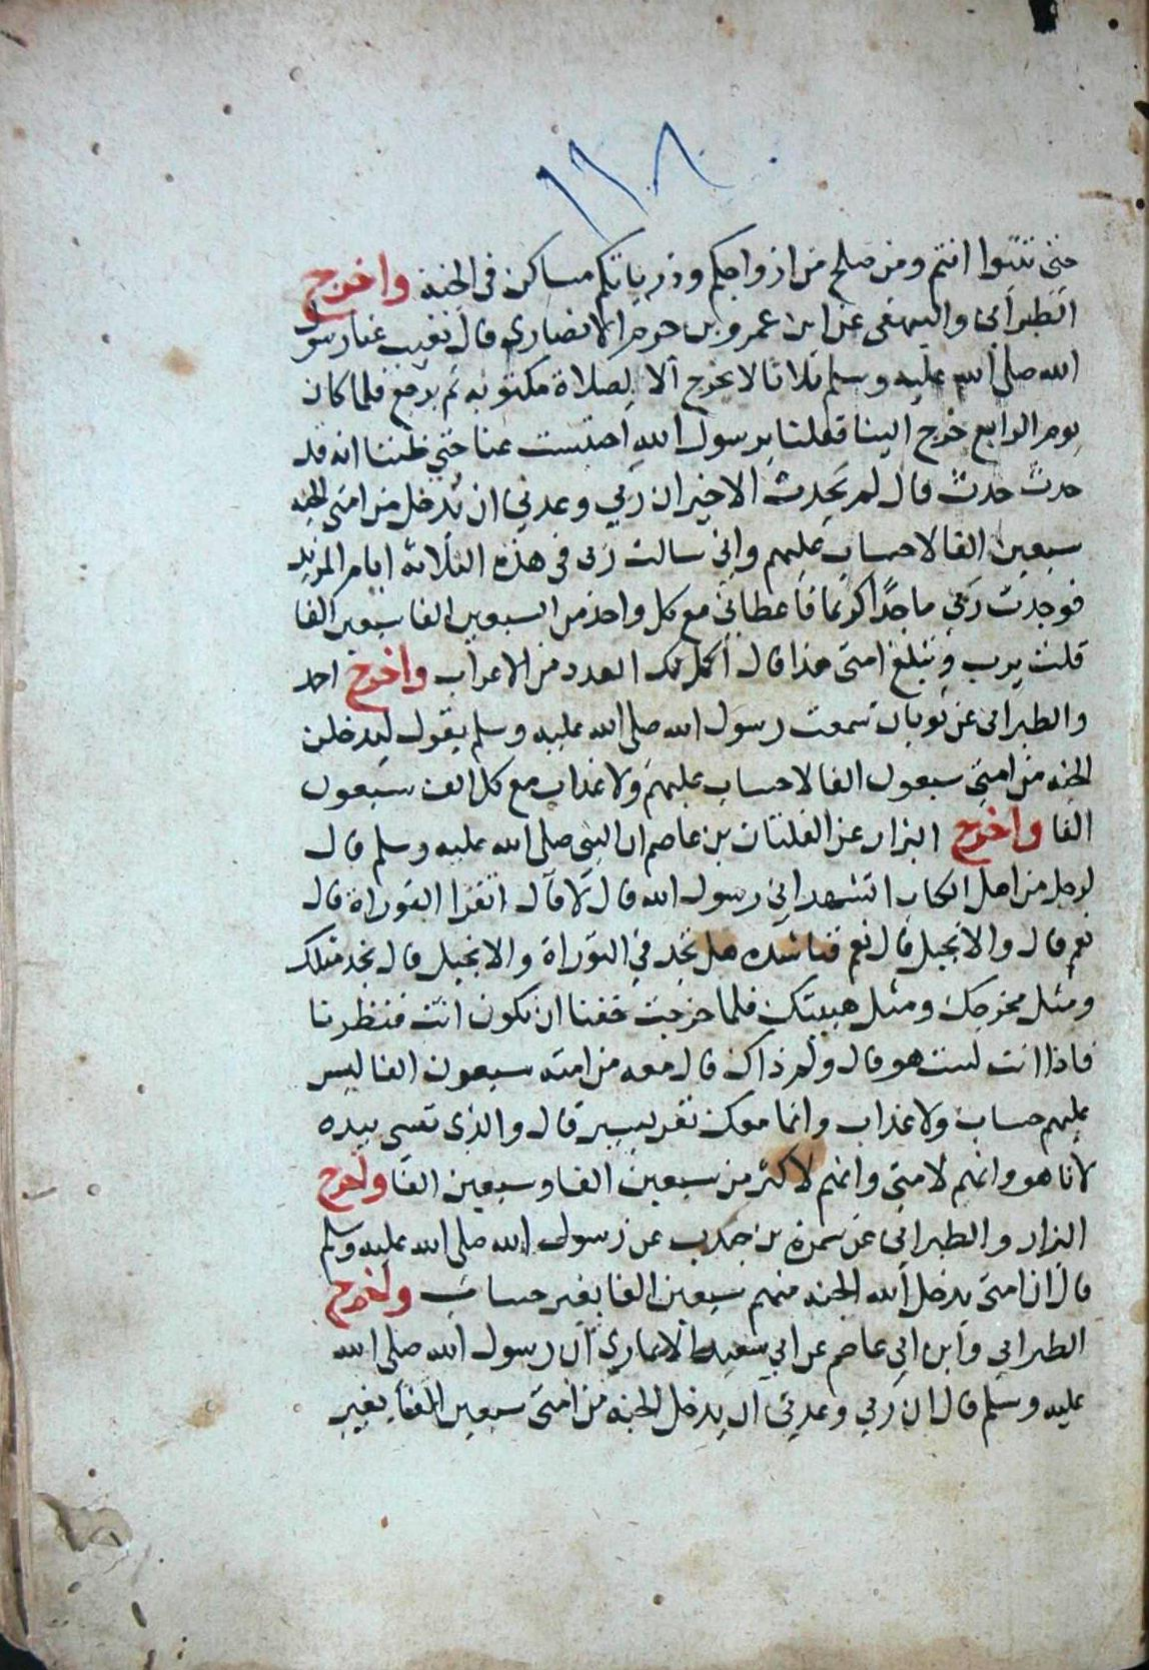 ١١٨
حتى تتبوا انتم ومن صلح من ازواجكم وذرياتكم مساكن فى الجنة واخرج
الطبرانى والبيهقى عن ابن عمرو بن حزم الانصارى قال تغيب عنا رسول
الله صلى الله عليه وسلم ثلاثا لا يخرج الا لصلاة مكتوبه ثم يرجع فلما كان
يوم الرابع خرج الينا فقلنا يرسول الله احتبست عنا حتى ظننا انه قد
حدث حدث قال لم يحدث الا خير ان ربي وعدني ان يدخل من امتى الجنه
سبعين الفا لا حساب عليهم وانى سالت ربى فى هذه الثلاثة ايام المزيد
فوجدت ربي ماجدًا كريما فاعطانى مع كل واحد من السبعين الفا سبعين الفا
قلت يرب وتبلغ امتى هذا قال اكمل لك العدد من الاعراب واخرج احمد
والطبرانى عن ثوبان سمعت رسول الله صلى الله عليه وسلم يقول ليدخلن
الجنه من امتى سبعون الفا لا حساب عليهم ولا عذاب مع كل الف سبعون
الفا واخرج البزار عن الفلتان بن عاصم ان النبى صلى الله عليه وسلم قال
لرجل من اهل الكتاب اتشهد انى رسول الله قال لا قال اتقرا التوراة قال
نعم قال والانجيل قال نعم فناشده هل تجد في التوراة والانجيل قال نجد مثلك
ومثل مخرجك ومثل هيئتك فلما خرجت خفنا ان تكون انت فنظرنا
فاذا انت لست هو قال ولم ذاك قال معه من امته سبعون الفا ليس
عليهم حساب ولا عذاب وانما معك نفر يسير قال والذى نفسى بيده
لانا هو وانهم لامتى وانهم لاكثر من سبعين الفا وسبعين الفا واخرج
البزار والطبرانى عن سمرة بن جندب عن رسول الله صلى الله عليه وسلم
قال ان امتى يدخل الله الجنه منهم سبعين الفا بغير حساب واخرج
الطبراني وابن ابي عاصم عن ابي سعيد الانمارى ان رسول الله صلى الله
عليه وسلم قال ان ربي وعدنى ان يدخل الجنه من امتى سبعين الفا بغير